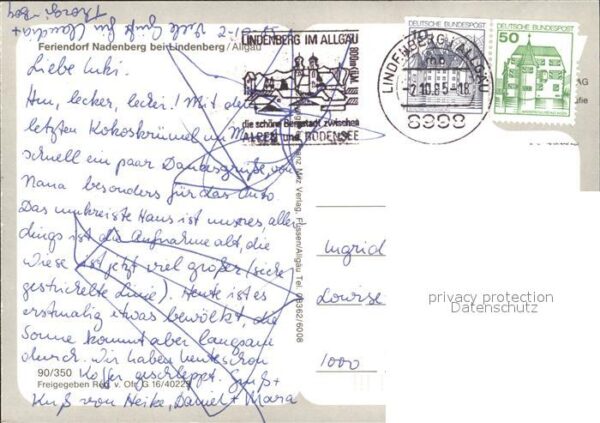 Feriendorf Nadenberg bei Lindenberg/Allgäu
Liebe Inki.
Hm, lecker, lecker! Mit den
letzten Kokoskrümel im M
schnell ein paar Dankesgrüße, von
Nana besonders für das Auto
Das umkreiste Haus ist unseres, aller
dings ist die Aufnahme alt, die
Wiese ist jetzt viel größer (siehe
gestrichelte Linie). Heute ist es
erstmalig etwas bewölkt, die
Sonne kommt aber langsam
durch. Wir haben heute schon
Koffer geschleppt. Gruß +
Kuß von Heike, Daniel + Mara
90/350
Freigegeben Reg. v. Ofr. G 16/40229
LINDENBERG IM ALLGÄU
800m ü.M.
die schöne Bergstadt zwischen
ALPEN und BODENSEE
LINDENBERG I ALLGÄU
-2.10.85-18
8998
DEUTSCHE BUNDESPOST
DEUTSCHE BUNDESPOST
50
Verlag, Füssen/Allgäu Tel. 08362/6008
Ingrid
Lowise
1000
privacy protection
Datenschutz